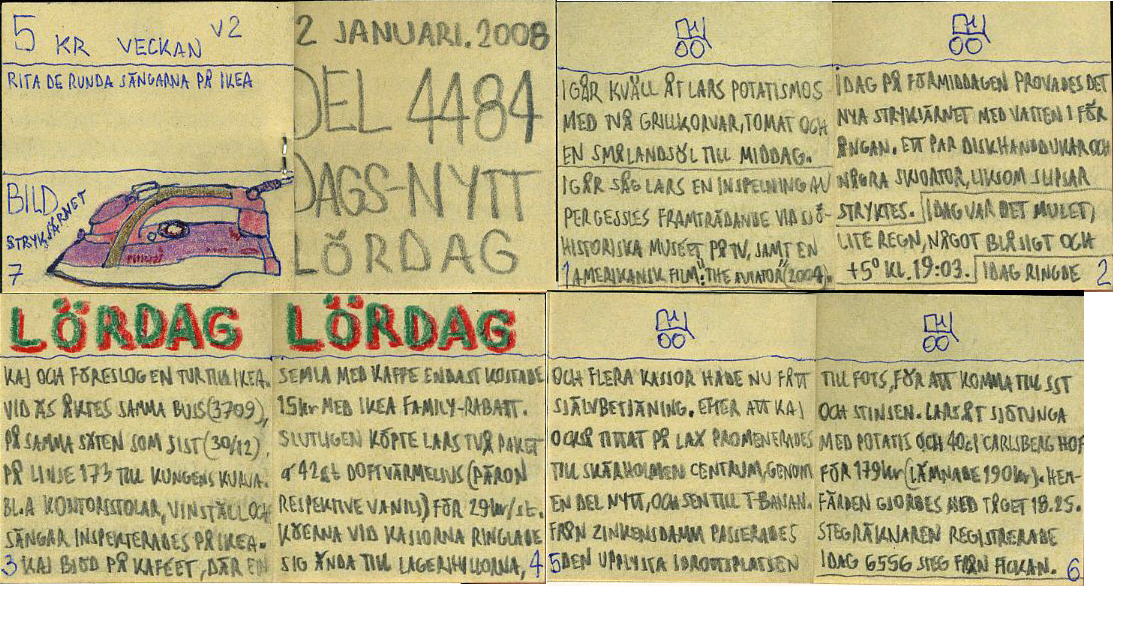 5 KR VECKAN V2
RITA DE RUNDA SÄNGARNA PÅ IKEA
BILD
STRYKJÄRNET
7
2 JANUARI. 2008
DEL 4484
DAGS-NYTT
LÖRDAG
IGÅR KVÄLL ÅT LARS POTATISMOS
MED TVÅ GRILLKORVAR, TOMAT OCH
EN SMÅLANDSÖL TILL MIDDAG.
IGÅR SÅG LARS EN INSPELNING AV
PER GESSLES FRAMTRÄDANDE VID SJÖ-
HISTORISKA MUSEET PÅ TV, SAMT EN
AMERIKANSK FILM: "THE AVIATOR" (2004).
1
IDAG PÅ FÖRMIDDAGEN PROVADES DET
NYA STRYKJÄRNET MED VATTEN I FÖR
ÅNGAN. ETT PAR DISKHANDDUKAR OCH
NÅGRA SKJORTOR, LIKSOM SLIPSAR
STRYKTES. IDAG VAR DET MULET,
LITE REGN, NÅGOT BLÅSIGT OCH
+5° KL. 19:03. IDAG RINGDE
2
LÖRDAG
KAJ OCH FÖRESLOG EN TUR TILL IKEA.
VID ÅS ÅKTES SAMMA BUSS (3709),
PÅ SAMMA SÄTEN SOM SIST (30/12),
PÅ LINJE 173 TILL KUNGENS KURVA.
BL.A KONTORSSTOLAR, VINSTÄLL OCH
SÄNGAR INSPEKTERADES PÅ IKEA.
3 KAJ BJÖD PÅ KAFÉET, DÄR EN
LÖRDAG
SEMLA MED KAFFE ENDAST KOSTADE
15kr MED IKEA FAMILY-RABATT.
SLUTLIGEN KÖPTE LARS TVÅ PAKET
á 42st DOFTVÄRMELJUS (PÄRON
RESPEKTIVE VANILJ) FÖR 29kr/st.
KÖERNA VID KASSORNA RINGLADE
SIG ÄNDA TILL LAGERHYLLORNA, 4
OCH FLERA KASSOR HADE NU FÅTT
SJÄLVBETJÄNING. EFTER ATT KAJ
OCKSÅ TITTAT PÅ LAX PROMENERADES
TILL SKÄRHOLMEN CENTRUM, GENOM
EN DEL NYTT, OCH SEN TILL T-BANAN.
FRÅN ZINKENSDAMM PASSERADES
5 DEN UPPLYSTA IDROTTSPLATSEN
TILL FOTS, FÖR ATT KOMMA TILL SST
OCH STINSEN. LARS ÅT SJÖTUNGA
MED POTATIS OCH 40cl CARLSBERG HOF
FÖR 179kr (LÄMNADE 190kr). HEM-
FÄRDEN GJORDES MED TÅGET 18.25.
STEGRÄKNAREN REGISTRERADE
IDAG 6556 STEG FRÅN FICKAN. 6